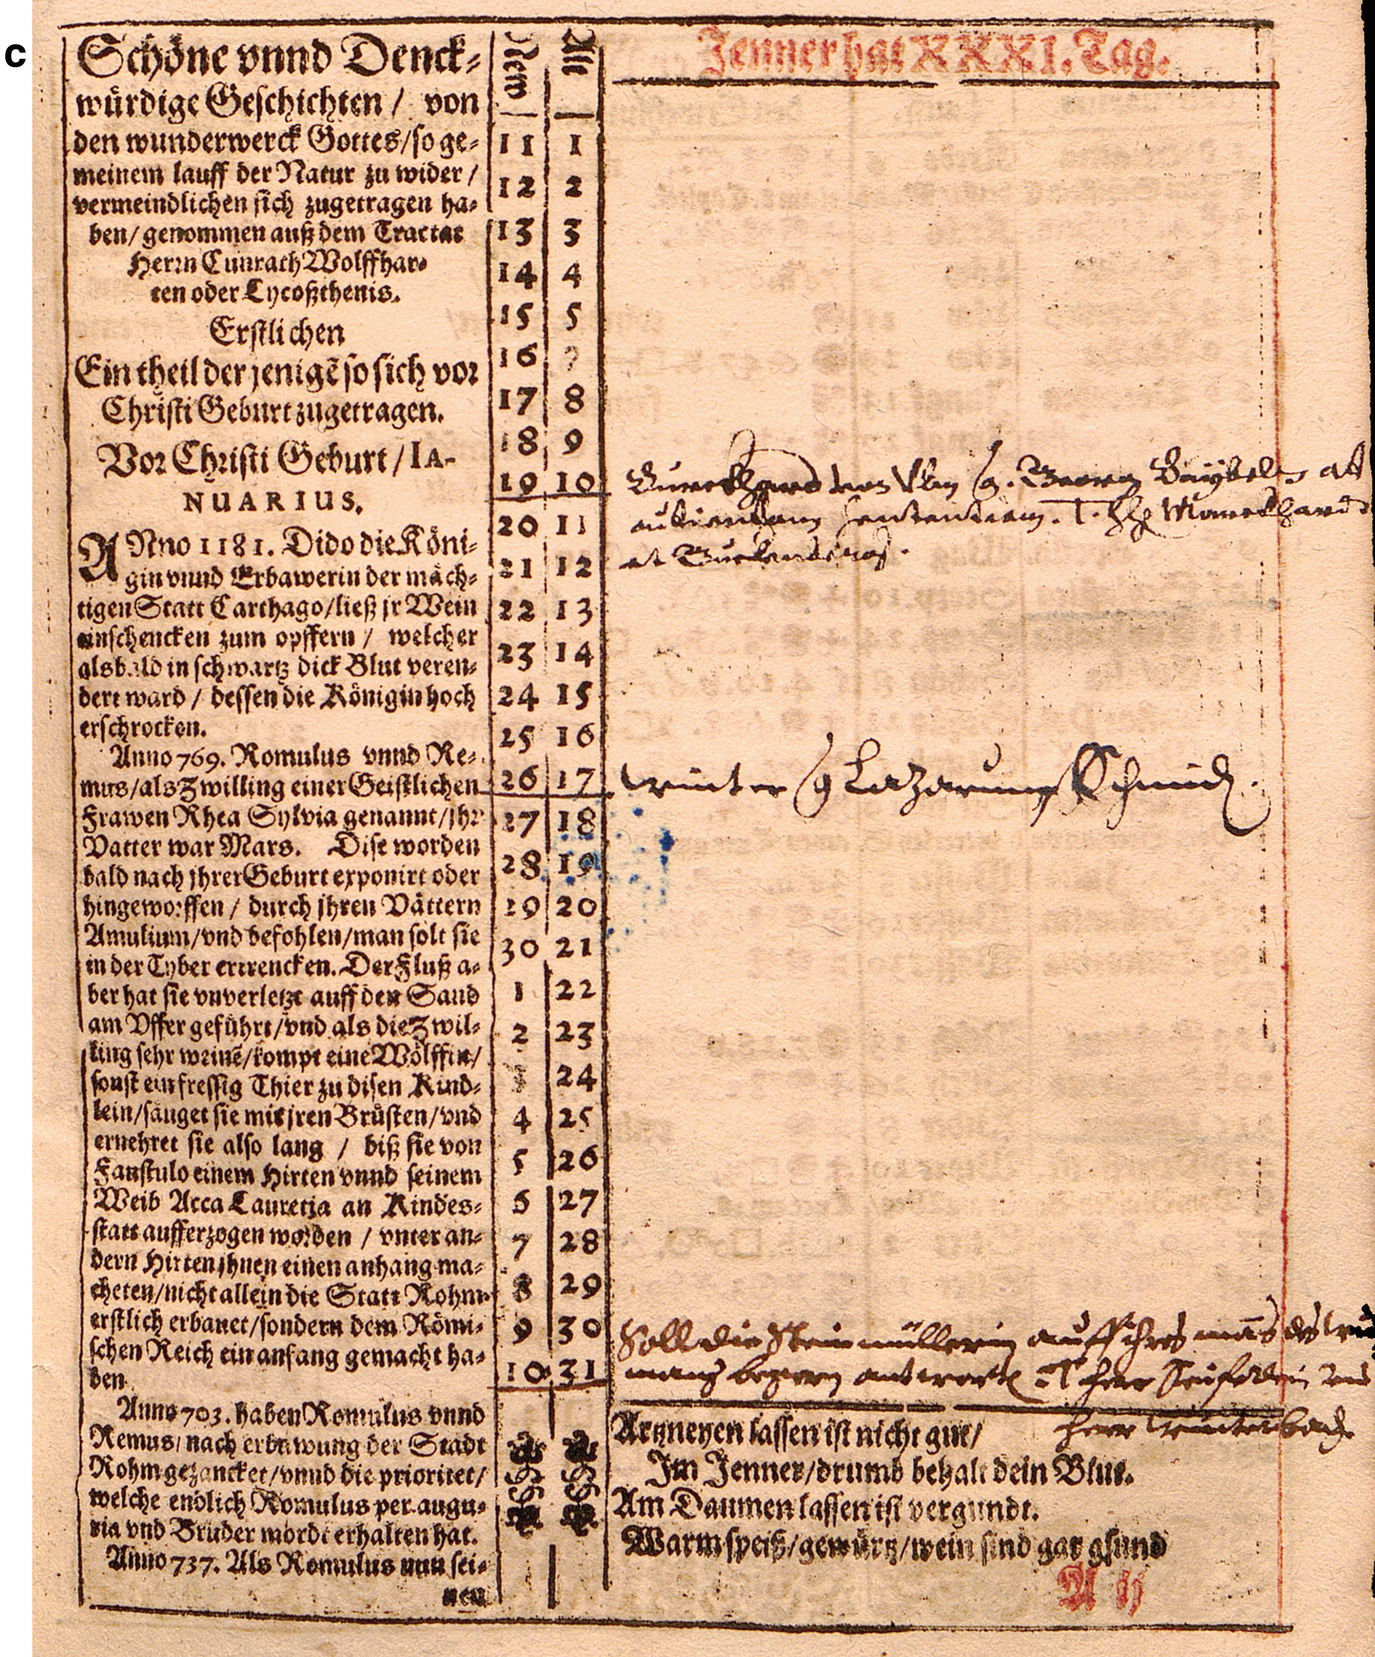 c
Schöne vnnd Denck⸗
würdige Geschichten / von
den wunderwerck Gottes/so ge⸗
meinem lauff der Natur zu wider /
vermeindlichen sich zugetragen ha⸗
ben/ genommen auß dem Tractat
Herrn Cunrath Wolffhar⸗
ten oder Lycoßthenis.
Erstlichen
Ein theil der jenigē so sich vor
Christi Geburt zugetragen.
Vor Christi Geburt / IA-
NUARIUS.
ANno 1181. Dido die Köni⸗
gin vnnd Erbawerin der mäch⸗
tigen Statt Carthago/ließ jr Wein
einschencken zum opffern / welcher
alsbald in schwartz dick Blut veren⸗
dert ward / dessen die Königin hoch
erschrocken.
Anno 769. Romulus vnnd Re⸗
mus/als Zwilling einer Geistlichen
Frawen Rhea Sylvia genannt/jhr
Vatter war Mars. Dise worden
bald nach jhrer Geburt exponirt oder
hingeworffen / durch jhren Vättern
Amulium/vnd befohlen/man solt sie
in der Tyber ertrencken. Der Fluß a⸗
ber hat sie vnverletzt auff den Sand
am Vffer geführt/vnd als die Zwil⸗
ling sehr weinē/kompt eine Wölffin/
sonst ein fressig Thier zu disen Kind⸗
lein/säuget sie mit jren Brüsten/vnd
ernehret sie also lang / biß sie von
Faustulo einem Hirten vnnd seinem
Weib Acca Lauretia an Kindes⸗
statt aufferzogen worden / vnter an⸗
dern Hirten jhnen einen anhang ma⸗
cheten/nicht allein die Statt Rohm
erstlich erbauet/sondern dem Römi⸗
schen Reich ein anfang gemacht ha⸗
ben
Anno 703. haben Romulus vnnd
Remus/nach erbawung der Stadt
Rohm gezancket/vnnd die prioritet/
welche endlich Romulus per augu⸗
ria vnd Bruder mordt erhalten hat.
Anno 737. Als Romulus nun sei⸗
nen
New Alt
11 1
12 2
13 3
14 4
15 5
16 7
17 8
18 9
19 10
20 11
21 12
22 13
23 14
24 15
25 16
26 17
27 18
28 19
29 20
30 21
1 22
2 23
3 24
4 25
5 26
6 27
7 28
8 29
9 30
10 31
Jenner hat XXXI. Tag.
Burckhard von Georg
audiendam sententiam. Marckhard
at
winter Lazarum Schmid.
Soll die Steinmüllerin auff ihres
mans begern antwort herr
herr winterbach
Artzneyen lassen ist nicht gut/
Im Jenner/drumb behalt dein Blut.
Am Daumen lassen ist vergundt.
Warm speiß/gewürtz/wein sind gar gsund
A ij